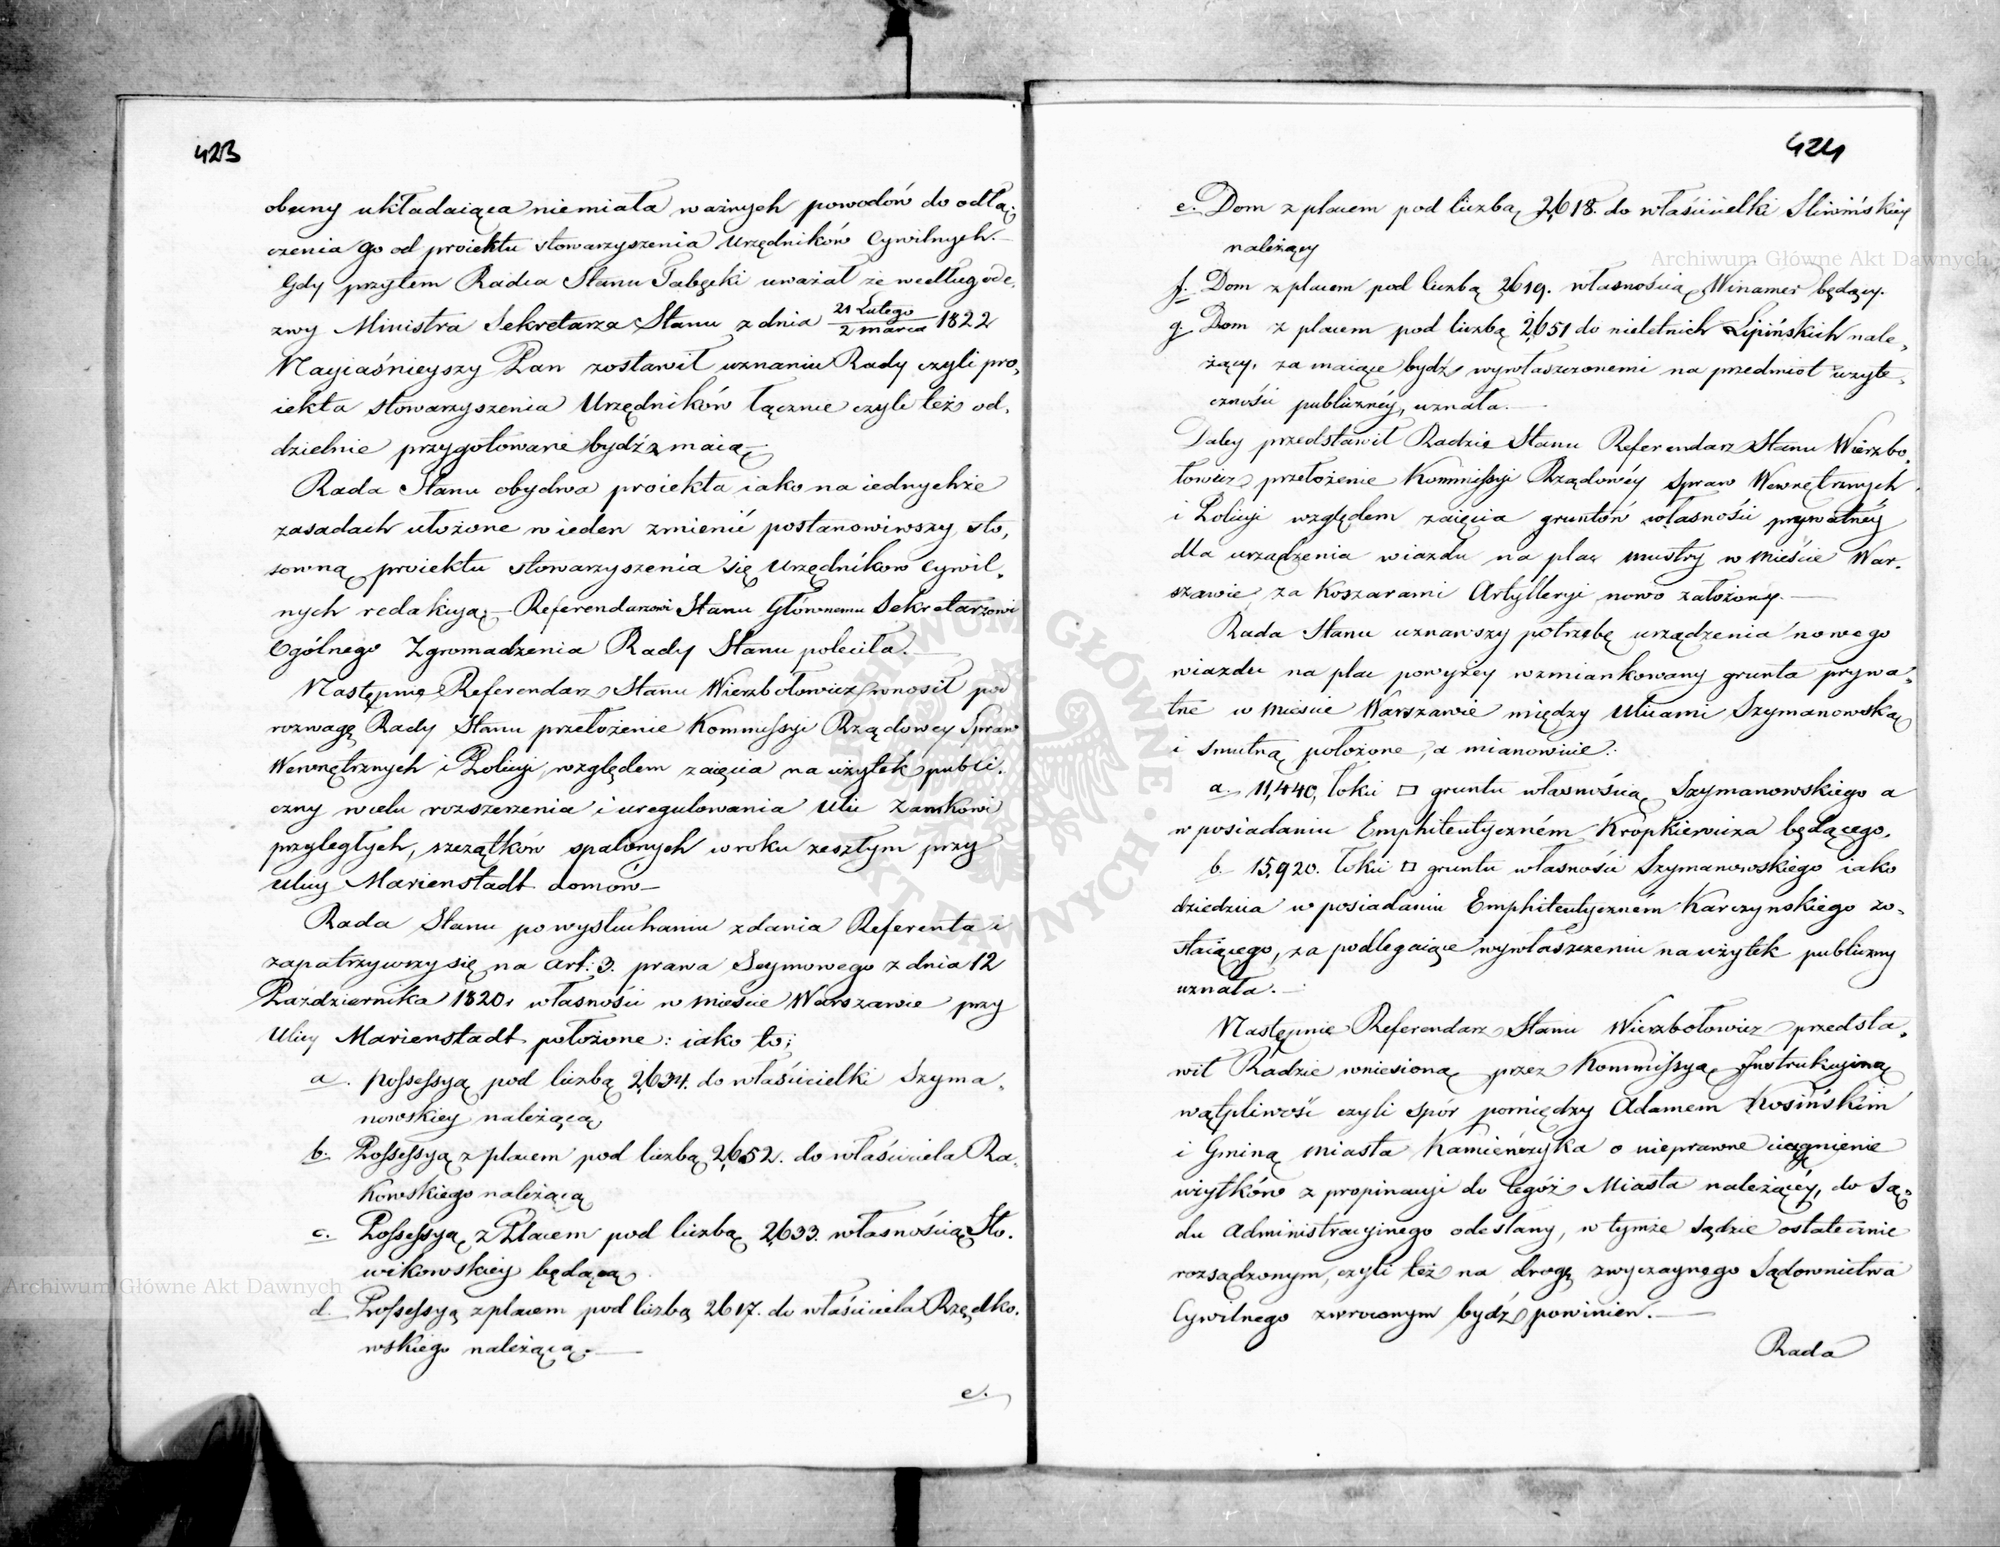 423
obecny układaiąca niemiała ważnych powodów do odłą,
czenia go od proiektu stowarzyszenia Urzędników Cywilnych.
Gdy przytem Radca Stanu Tabęcki uważał że według ode,
zwy Ministra Sekretarza Stanu z dnia 21 Lutego / 2 marca 1822
Nayiaśnieyszy Pan zostawił uznaniu Rady czyli pro,
iekta stowarzyszenia Urzędników łącznie czyli też od,
dzielnie przygotowane bydź maią
Rada Stanu obydwa proiekta iako na iednychże
zasadach ułożone w ieden zmienić postanowiwszy, sto,
sowną proiektu stowarzyszenia się Urzędników Cywil,
nych redakcyą, Referendarzowi Stanu Głównemu Sekretarzowi
Ogólnego Zgromadzenia Rady Stanu poleciła.
Następnie Referendarz Stanu Wierzbołowicz wnosił pod
rozwagę Rady Stanu przełożenie Kommissyi Rządowey Spraw
Wewnętrznych i Policyi, względem zaięcia na użytek publi,
czny w celu rozszerzenia i uregulowania Ulic Zamkowi
przyległych, szczątków spalonych w roku zeszłym przy
Ulicy Marienstadt domów
Rada Stanu po wysłuchaniu zdania Referenta i
zapatrzywszy się na art: 3. prawa Seymowego z dnia 12
Października 1820r własności w mieście Warszawie przy
Ulicy Marienstadt położone: iako to;
a. possessyą pod liczbą 2,634. do właścicielki Szyma,
nowskiey należącą
b. Possessyą z placem pod liczbą 2,652. do właściciela Ra,
kowskiego należącą
c. Possessyą z Placem pod liczbą 2,633. własnością Sło,
wikowskiey będącą
d. Possessyą z placem pod liczbą 2617. do właściciela Rzędko,
wskiego należącą.
e.
424
e. Dom z placem pod liczbą 2,618. do właścicielki Sliwińskiey
należący
f. Dom z placem pod liczbą 2,619. własnością Winamer będący.
g. Dom z placem pod liczbą 2,651 do nieletnich Lipińskich nale,
żący, za maiące bydź wywłaszczonemi na przedmiot użyte,
czności publicznéy, uznała.
Daley przedstawił Radzie Stanu Referendarz Stanu Wierzbo,
łowicz przełożenie Kommissyi Rządowéy Spraw Wewnętrznych
i Policyi względem zaięcia gruntów własności prywatnéy
dla urządzenia wiazdu na plac mustry w mieście War,
szawie, za Koszarami Artylleryi nowo założony.
Rada Stanu uznawszy potrzebę urządzenia nowego
wiazdu na plac powyżey wzmiankowany grunta prywa,
tne w mieście Warszawie między Ulicami Szymanowską
i Smutną położone, a mianowicie:
a. 11,440, łokci □ gruntu własnością Szymanowskiego a
w posiadaniu Emphiteutyczném Kropkiewicza będącego.
b. 15,920. łokci □ gruntu własności Szymanowskiego iako
dziedzica w posiadaniu Emphiteutyczném Karczynskiego zo,
staiącego, za podlegaiące wywłaszczeniu na użytek publiczny
uznała.
Następnie Referendarz Stanu Wierzbołowicz przedsta,
wił Radzie wniesioną przez Kommissyą Instrukcyiną
wątpliwość czyli spór pomiędzy Adamem Kosińskim
i Gminą Miasta Kamieńczyka o nieprawne ciągnienie
użytków z propinacyi do tegóż Miasta należącéy, do Są,
du Administracyinego odesłany, w tymże Sądzie ostatecznie
rozsądzonym, czyli też na drogę zwyczaynego Sądownictwa
Cywilnego zwróconym bydź powinien.
Rada
Archiwum Główne Akt Dawnych
Archiwum Główne Akt Dawnych
ARCHIWUM GŁÓWNE AKT DAWNYCH